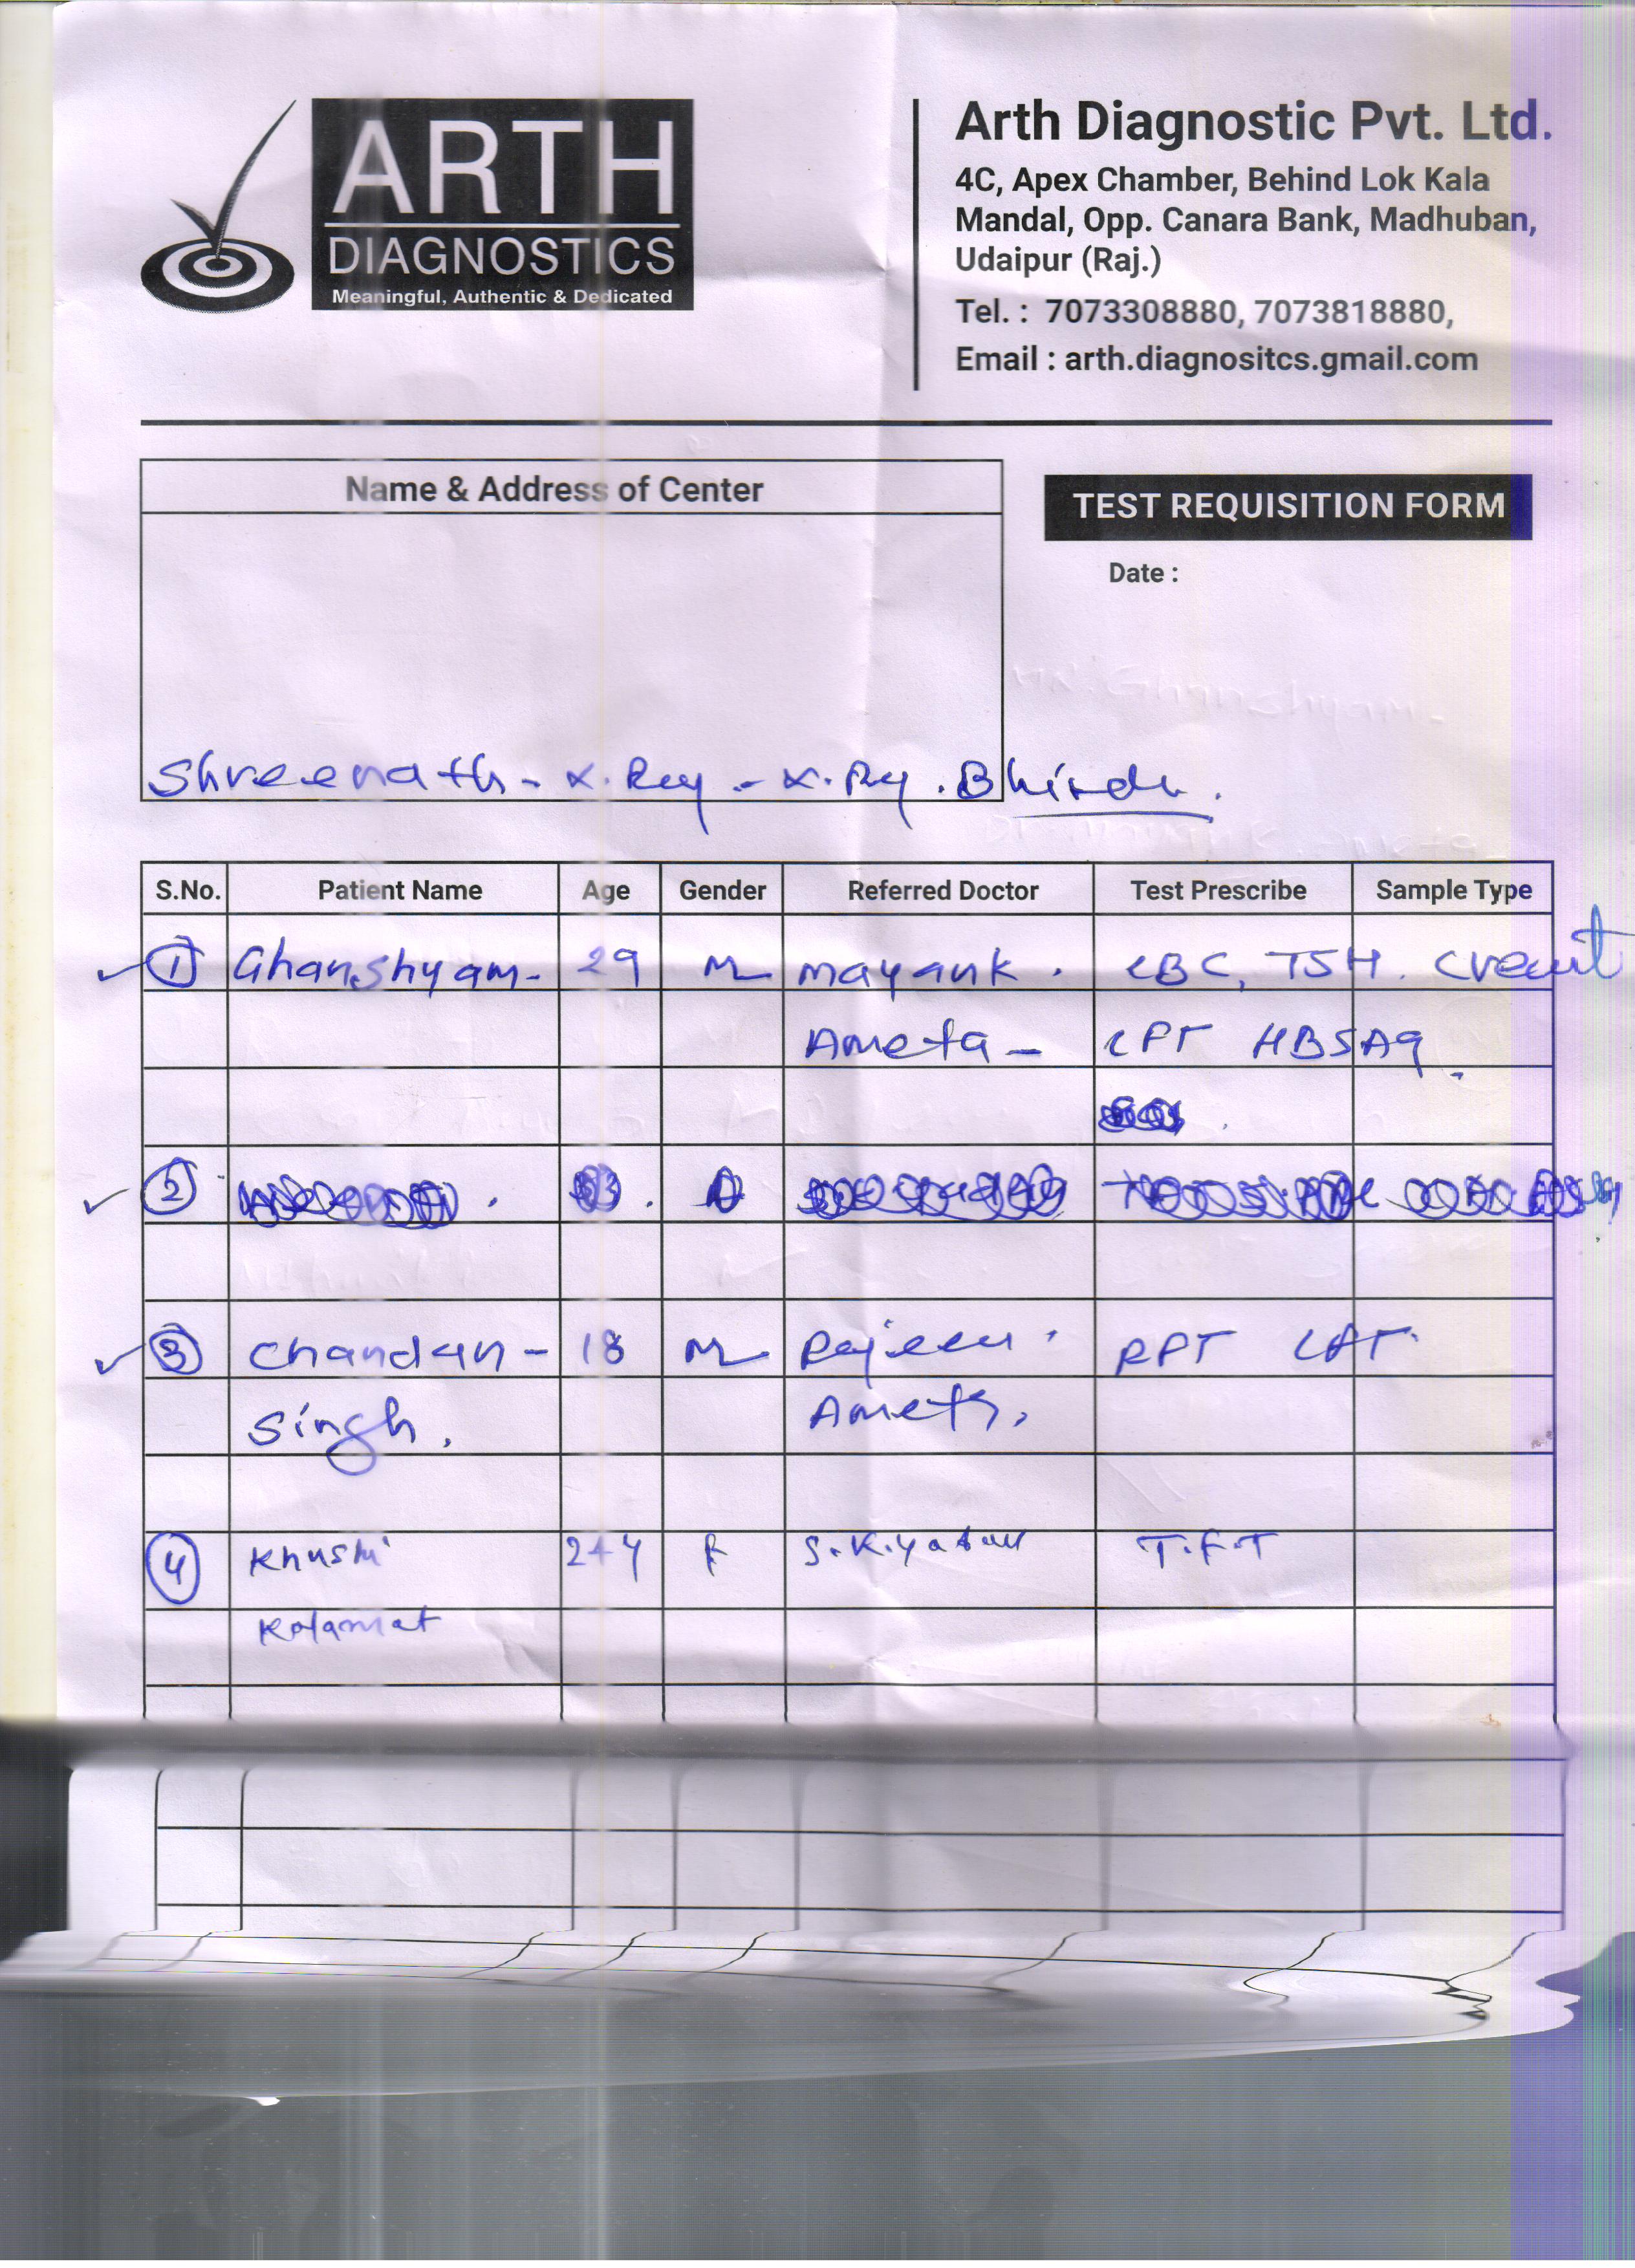 ARTH
DIAGNOSTICS
Meaningful, Authentic & Dedicated
Arth Diagnostic Pvt. Ltd.
4C, Apex Chamber, Behind Lok Kala
Mandal, Opp. Canara Bank, Madhuban,
Udaipur (Raj.)
Tel. : 7073308880, 7073818880,
Email : arth.diagnositcs.gmail.com
Name & Address of Center
TEST REQUISITION FORM
Date :
Shreenath - X.Ray - X.Ray . Bhinder.
S.No. Patient Name Age Gender Referred Doctor Test Prescribe Sample Type
1 Ghanshyam- 29 M mayank . CBC, TSH. Creatit
Ameta - LFT HBSAg
2
3 Chandan - 18 M Rajeev . RFT LFT.
Singh. Ameta,
4 Khushi 24y F S.K.yadav T.F.T
Kalamat